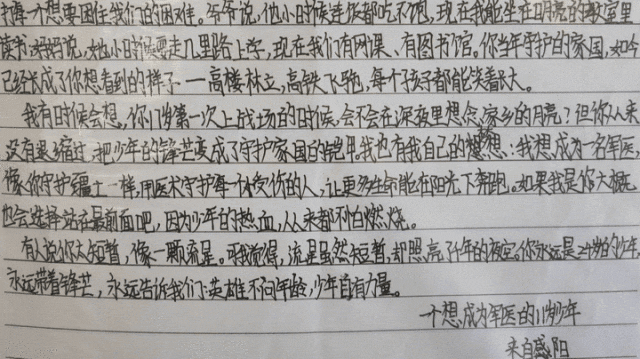 掉一个想要困住我们的困难。爷爷说,他小时候连饭都吃不饱,现在我能坐在明亮的教室里
读书;奶奶说,她小时候要走几里路上学,现在我们有网课、有图书馆。你当年守护的家国,如今
已经长成了你想看到的样子——高楼林立,高铁飞驰,每个孩子都能笑着长大。
我有时候会想,你17岁第一次上战场的时候,会不会在深夜里想念家乡的月亮?但你从来
没有退缩过,把少年的锋芒变成了守护家国的铠甲。我也有我自己的梦想:我想成为一名军医,
像你守护疆土一样,用医术守护每一个受伤的人,让更多生命能在阳光下奔跑。如果我是你,大概
也会选择站在最前面吧,因为少年的热血,从来都不白燃烧。
有人说你太短暂,像一颗流星。可我觉得,流星虽然短暂,却照亮了千年的夜空。你永远是 少年,
永远带着锋芒,永远告诉我们:英雄不问年龄,少年自有力量。
一个想成为军医的11岁少年
来自咸阳